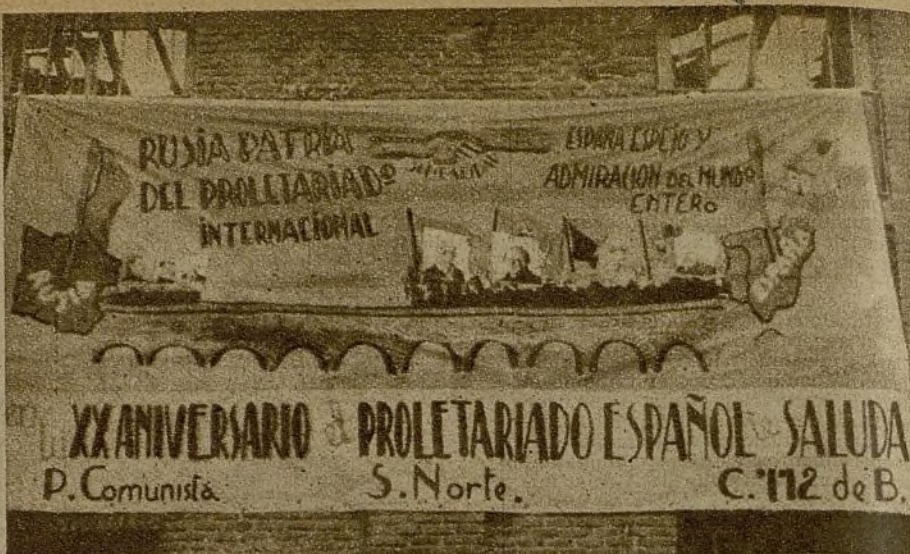 RUSIA PATRIA
DEL PROLETARIADO
INTERNACIONAL
ESPAÑA ESPEJO Y
ADMIRACION DEL MUNDO
ENTERO
XX ANIVERSARIO el PROLETARIADO ESPAÑOL te SALUDA
P. Comunista S. Norte. C. 112 de B.